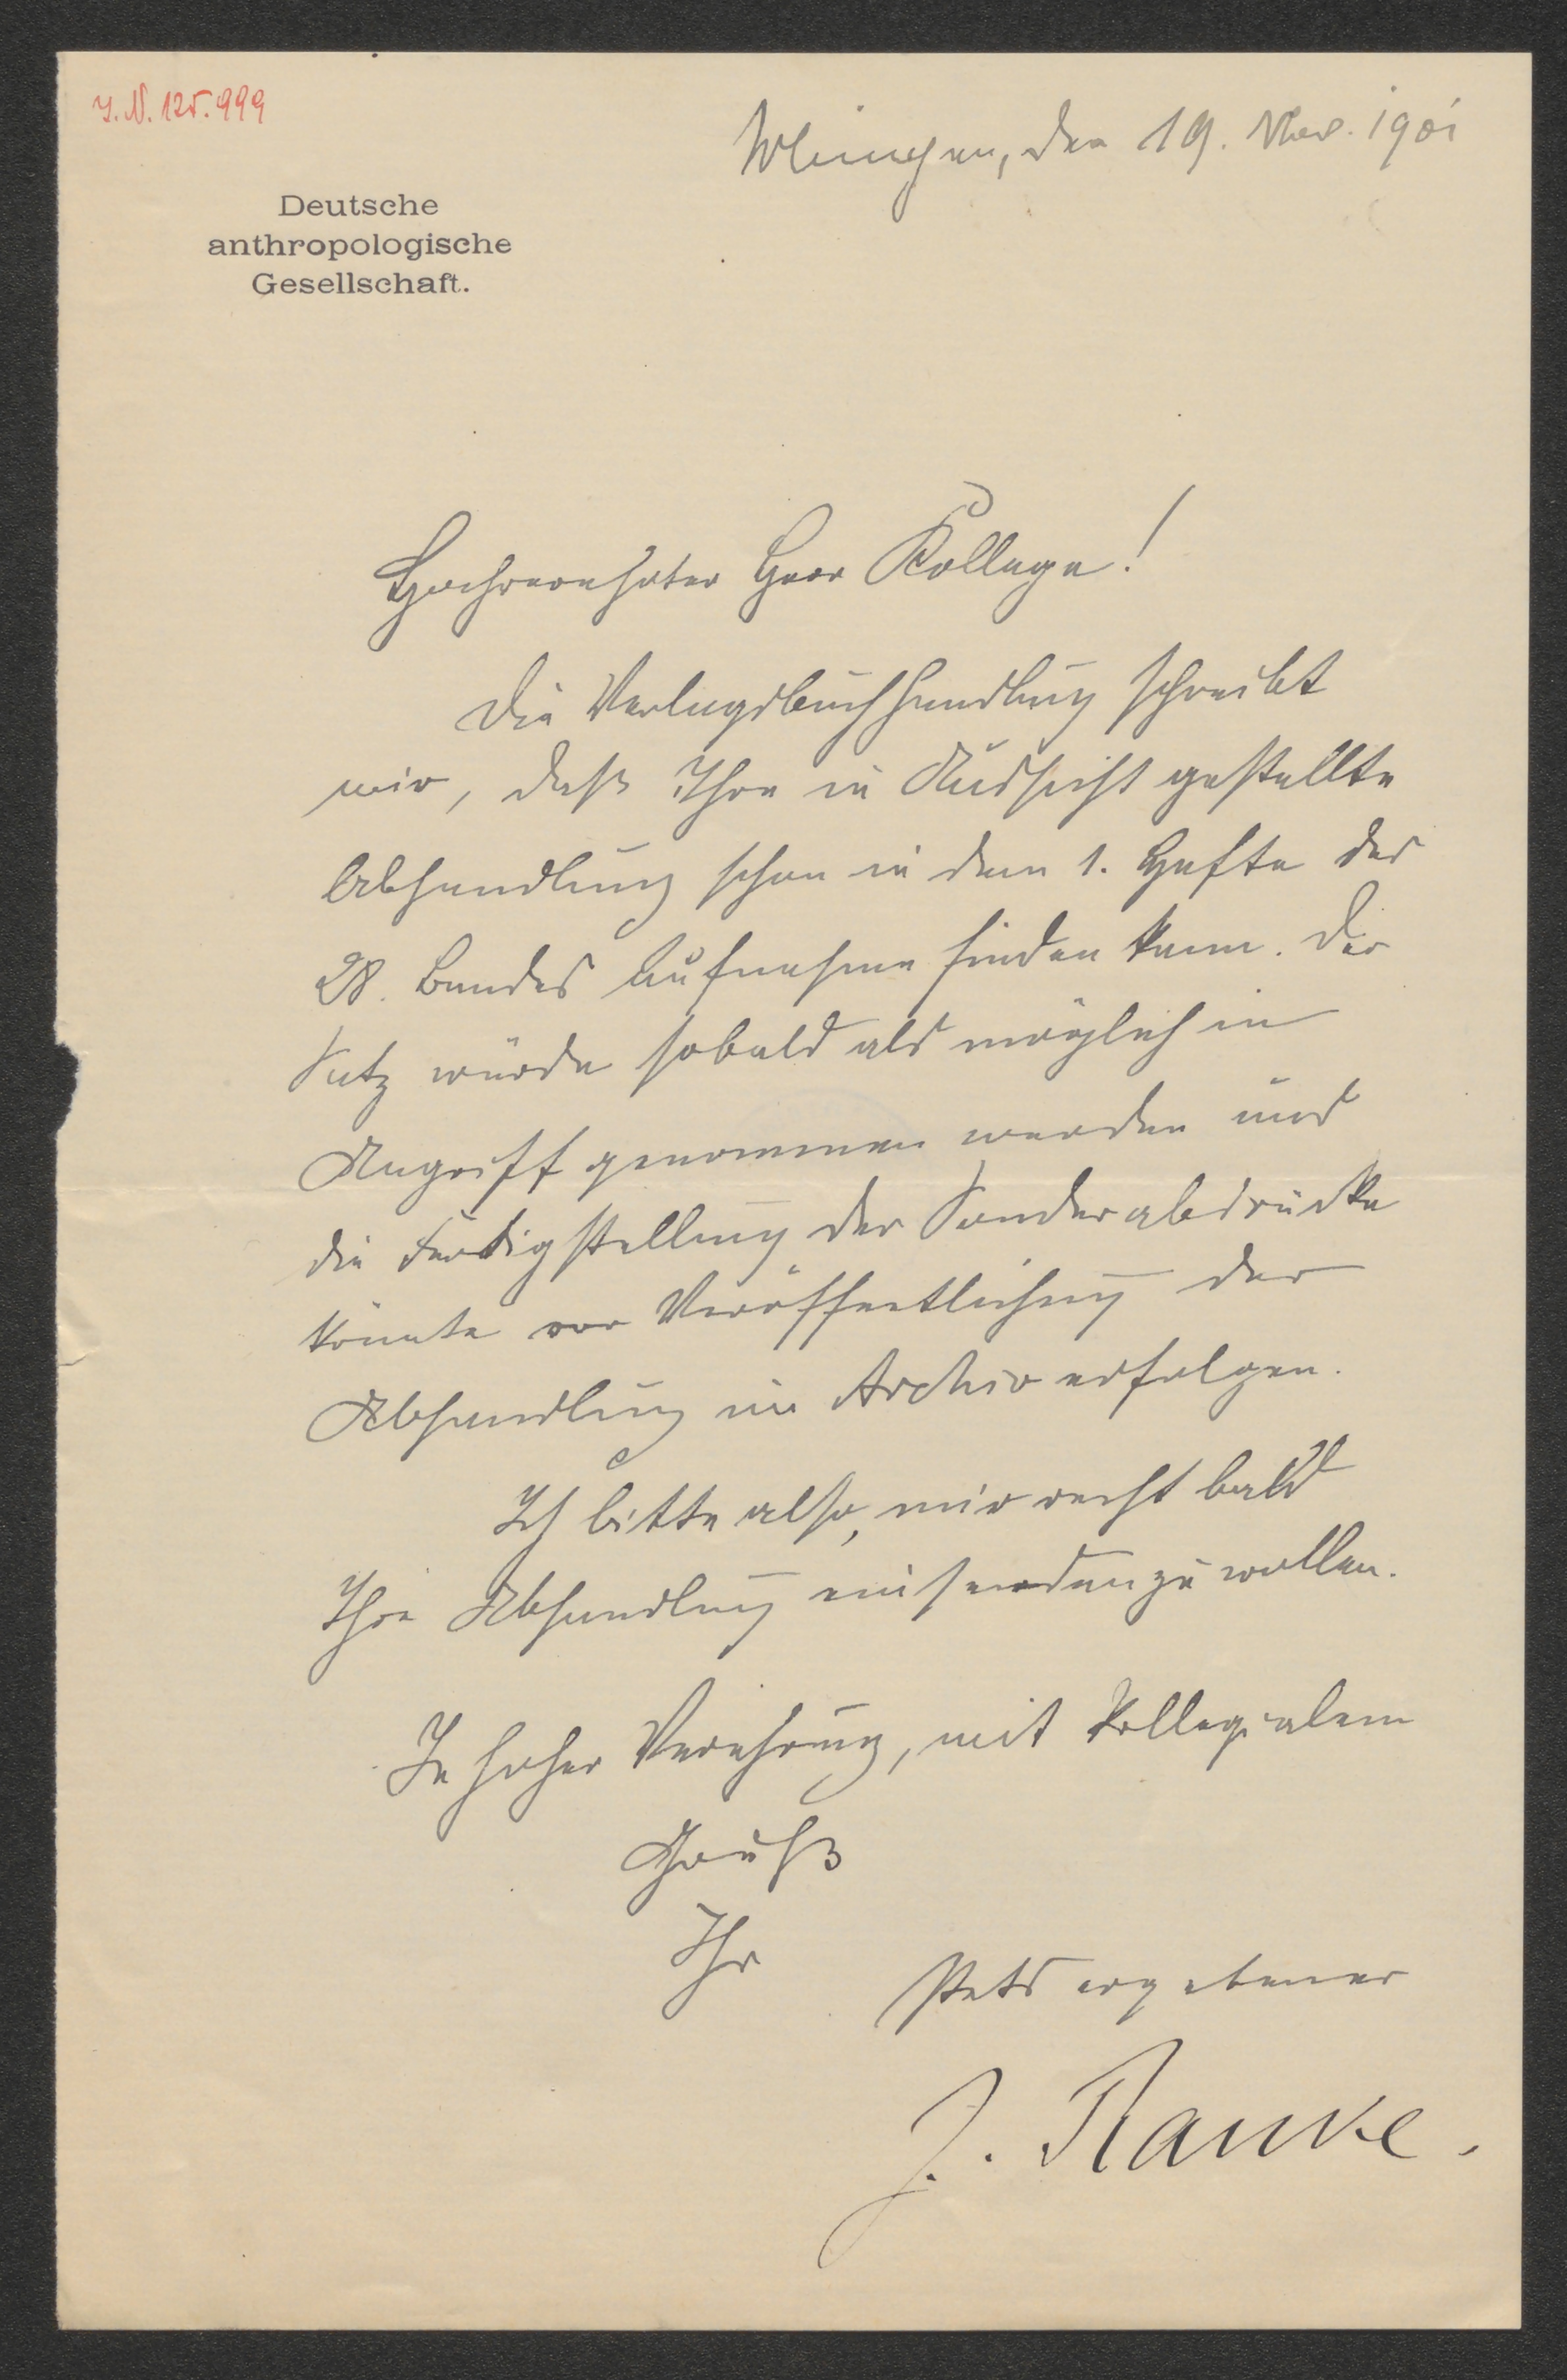 I.N. 125.999
München, den 19. Nov. 1901
Deutsche
anthropologische
Gesellschaft.
Hochverehrter Herr Kollege!
Die Verlagsbuchhandlung schreibt
mir, daß Ihre in Aussicht gestellte
Abhandlung schon in dem 1. Hefte des
28. Bandes Aufnahme finden kann. Der
Satz würde sobald als möglich in
Angriff genommen werden und
die Fertigstellung der Sonderabdrücke
könnte vor Veröffentlichung der
Abhandlung im Archiv erfolgen.
Ich bitte also, mir recht bald
Ihre Abhandlung einsenden zu wollen.
In hoher Verehrung, mit kollegialem
Gruß
Ihr
stets ergebener
J. Ranke.